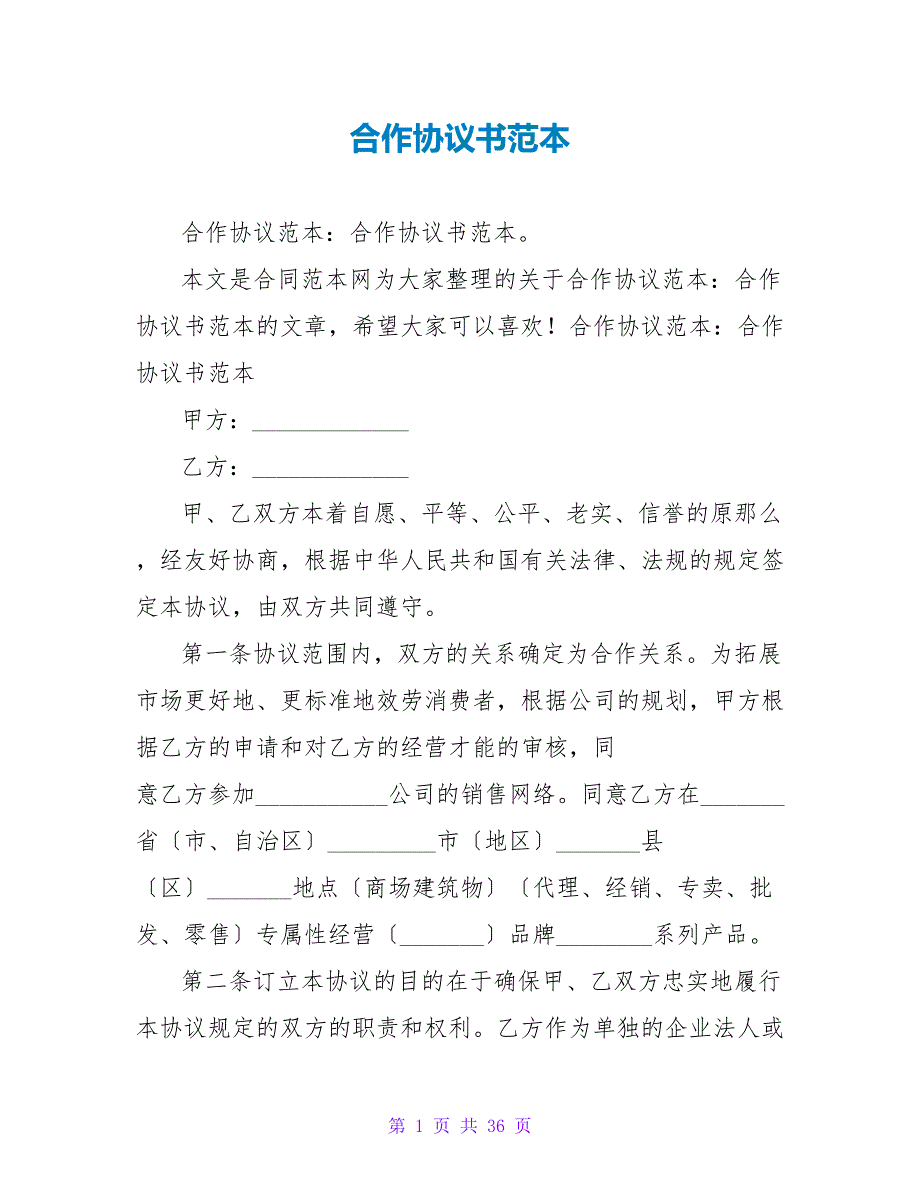 合作协议书范本
合作协议范本：合作协议书范本。
本文是合同范本网为大家整理的关于合作协议范本：合作
协议书范本的文章，希望大家可以喜欢！合作协议范本：合作
协议书范本
甲方：_____________
乙方：_____________
甲、乙双方本着自愿、平等、公平、老实、信誉的原那么
，经友好协商，根据中华人民共和国有关法律、法规的规定签
定本协议，由双方共同遵守。
第一条协议范围内，双方的关系确定为合作关系。为拓展
市场更好地、更标准地效劳消费者，根据公司的规划，甲方根
据乙方的申请和对乙方的经营才能的审核，同
意乙方参加___________公司的销售网络。同意乙方在_______
省〔市、自治区〕_________市〔地区〕_______县
〔区〕_______地点〔商场建筑物〕〔代理、经销、专卖、批
发、零售〕专属性经营〔_______〕品牌________系列产品。
第二条订立本协议的目的在于确保甲、乙双方忠实地履行
本协议规定的双方的职责和权利。乙方作为单独的企业法人或
第 1 页 共 36 页